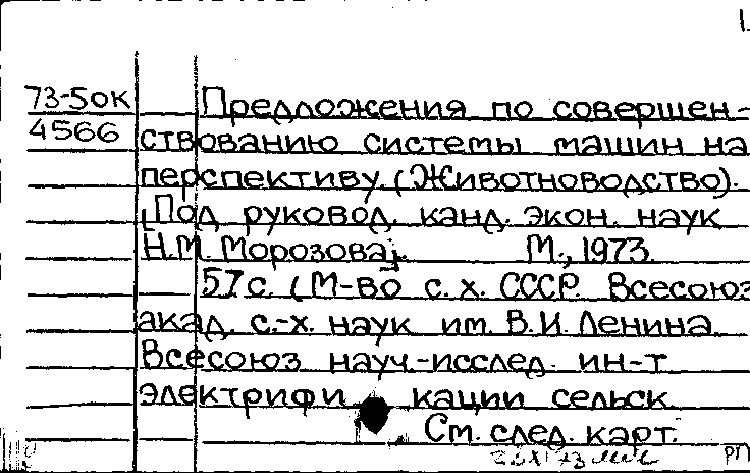 1.
73-5ок
4566
Предложения по совершен-
ствованию системы машин на
перспективу. (Животноводство).
[Под руковод. канд. экон. наук
Н.М. Морозова]. М., 1973.
57 с. (М-во с. х. СССР. Всесоюз
акад. с.-х. наук им. В.И. Ленина
Всесоюз науч.-исслед. ин-т
электрифи кации сельск.
См. след. карт.
РП